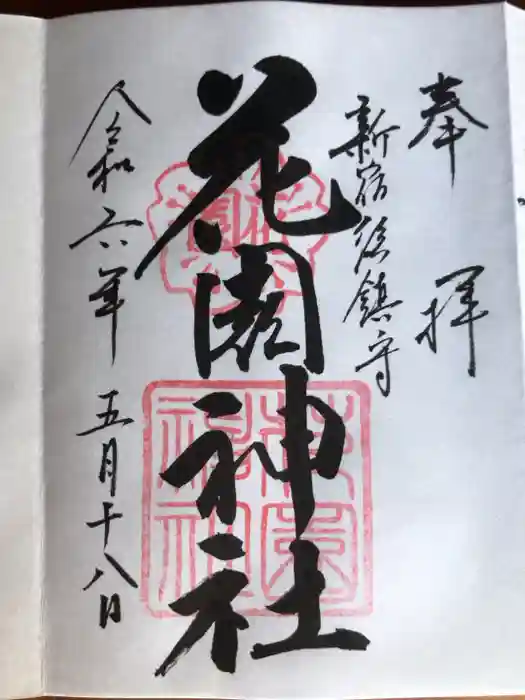 奉拝
新宿総鎮守
花園神社
令和六年五月十八日